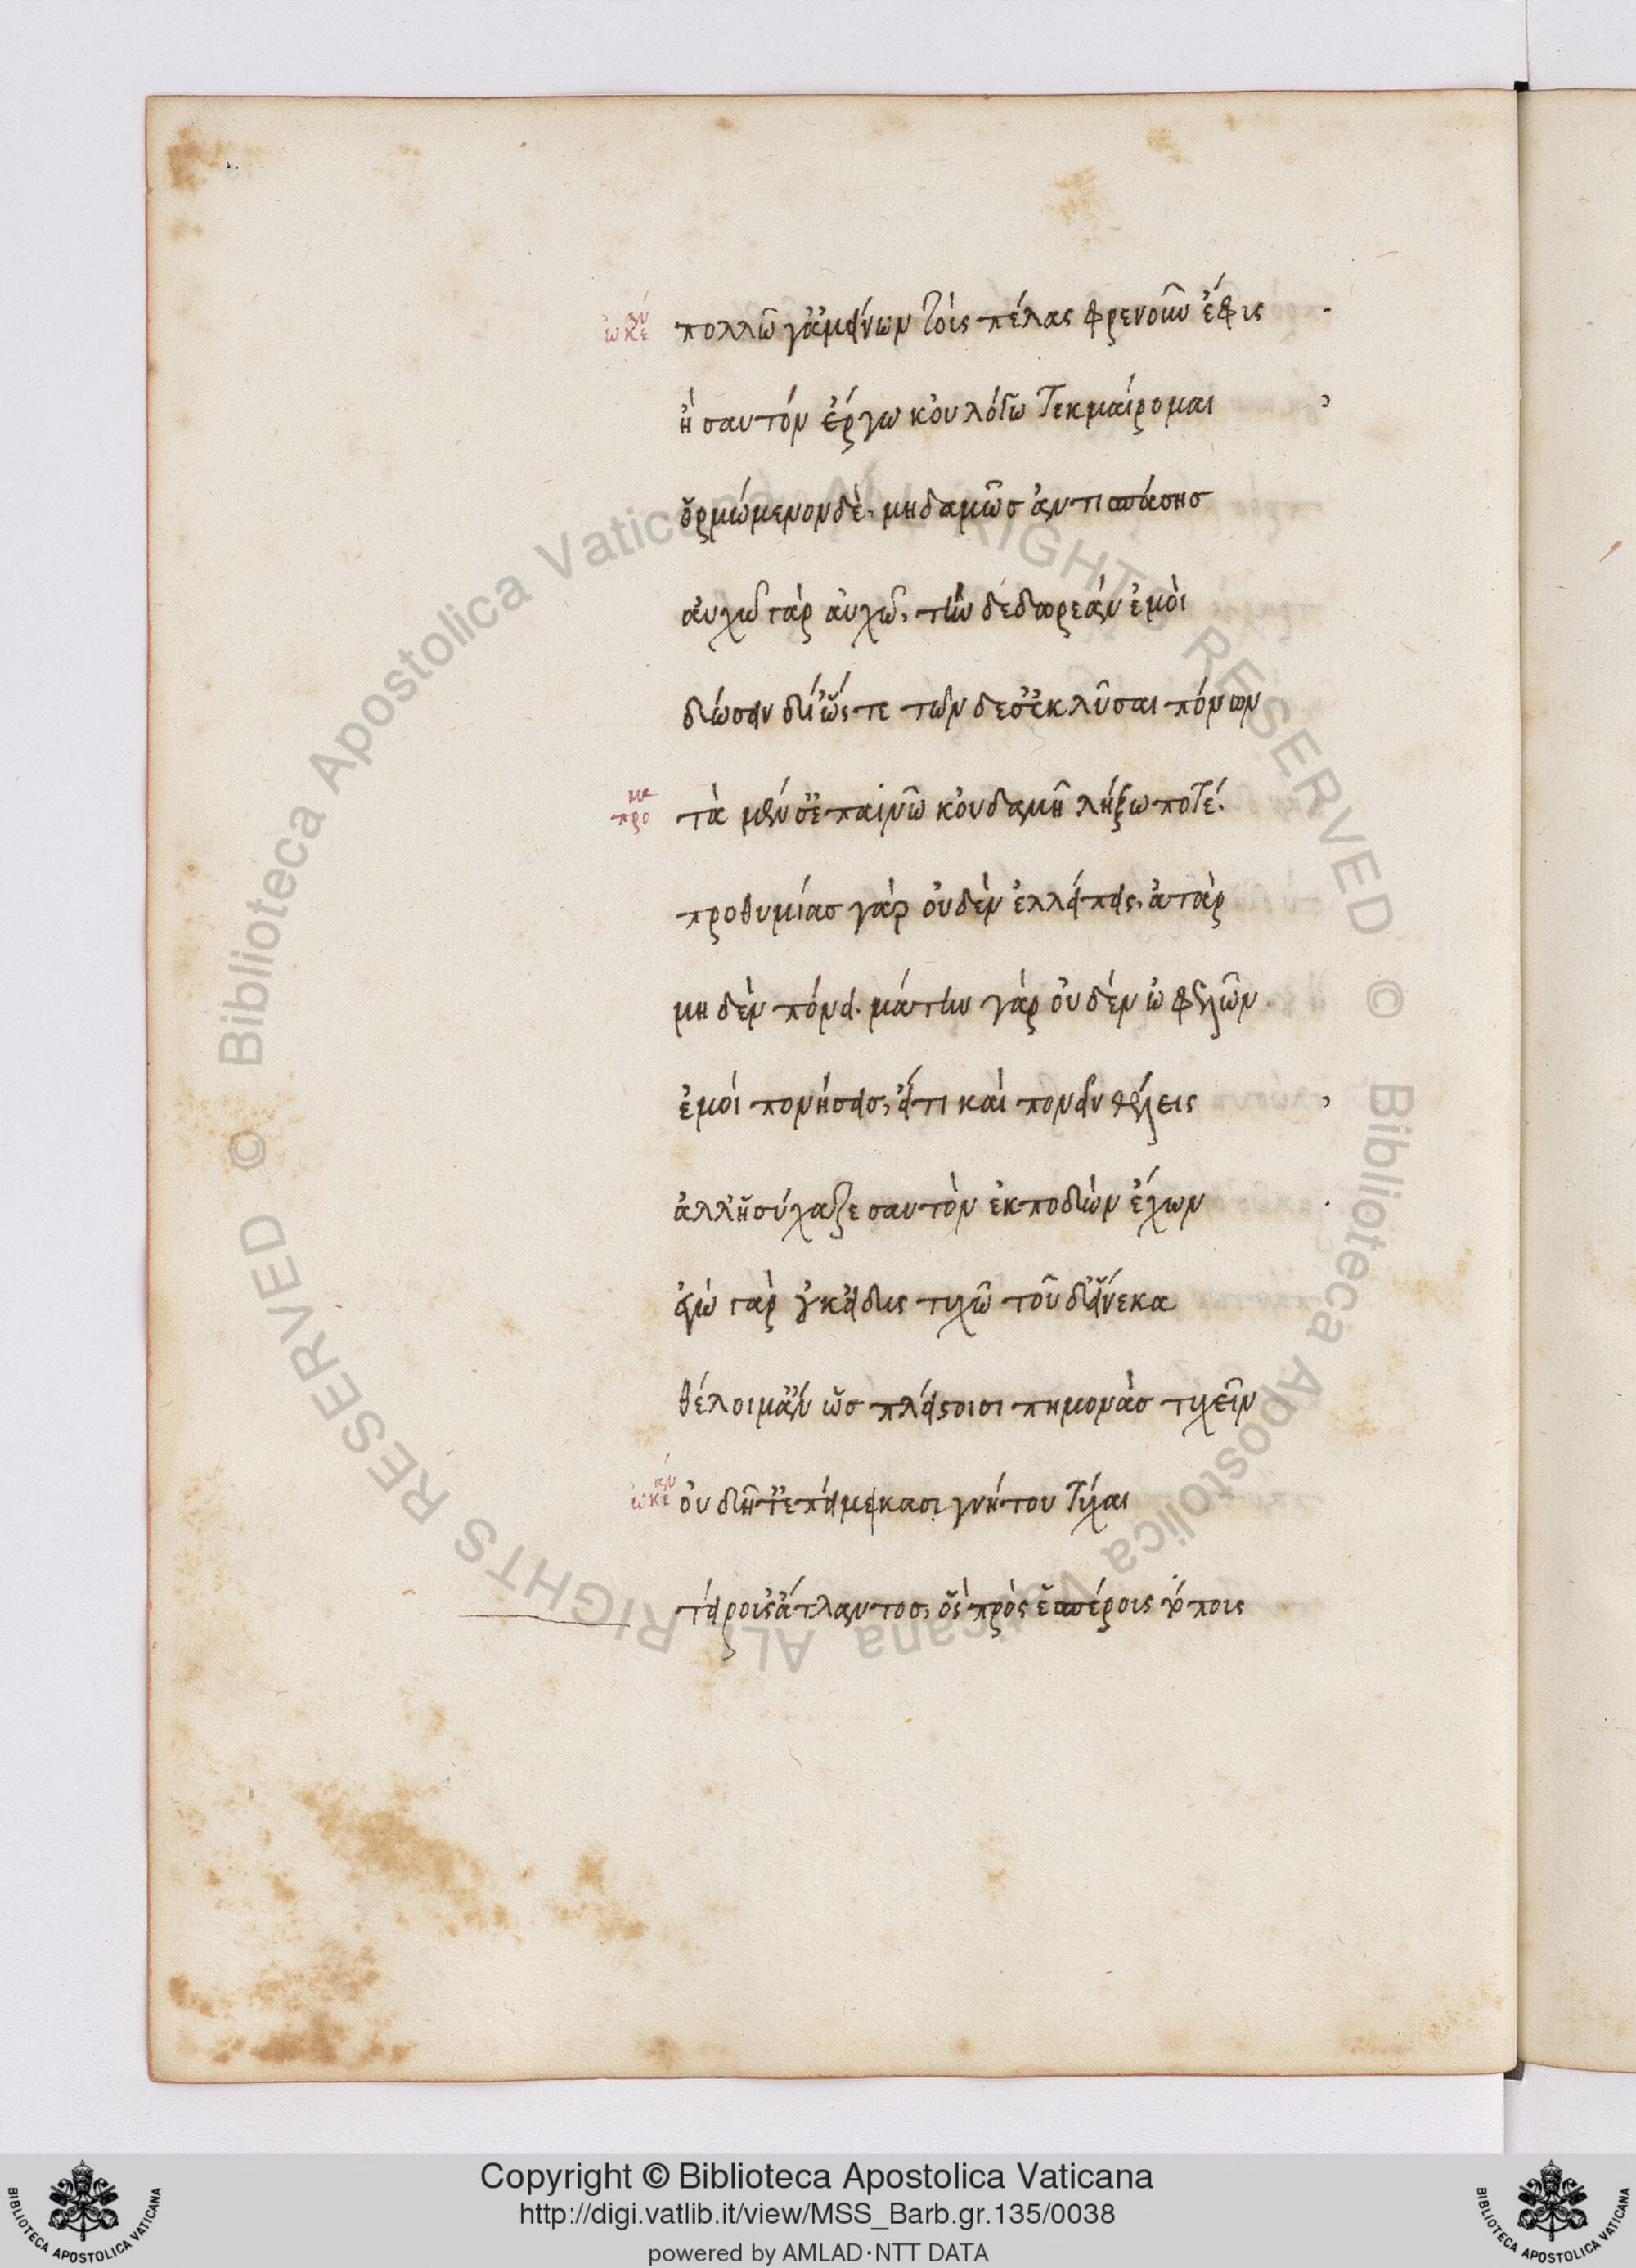 ὠκεαν πολλῶ γ᾽ ἀμείνων τοὺς πέλας φρενοῦν ἔφυς
ἢ σαυτόν ἔργω κ᾽ οὐ λόγω τεκμαίρομαι
ὁρμώμενον δὲ, μηδαμῶς ἀντισπάσης
αὐχῶ γὰρ αὐχῶ, τὴν δε δωρεὰν ἐμοὶ
δώσειν δί᾽ ὥστε τῶν δε σ᾽ ἐκλῦσαι πόνων
προμε τὰ μέν σ᾽ ἐπαινῶ κ᾽ οὐδαμῆ λήξω ποτέ.
προθυμίας γὰρ οὐδὲν ἐλλείπεις, ἀτὰρ
μηδὲν πόνει. μάτην γὰρ οὐδὲν ὠφελῶν
ἐμοὶ πονήσεις, εἴ τι καὶ πονεῖν θέλεις
ἀλλ᾽ ἡσύχαζε σαυτὸν ἐκποδὼν ἔχων
ἐγὼ γὰρ οὐκ εἰ δυς τυχῶ τοῦ δ᾽ εἵνεκα
θέλοιμ᾽ ἂν ὡς πλείστοισι πημονὰς τυχεῖν
ὠκεαν οὐ δῆτ᾽ ἐπεί με καὶ κασιγνήτου τύχαι
τείρουσ᾽ ἄτλαντος, ὃς πρὸς ἑσπέρους τόπους
Copyright © Biblioteca Apostolica Vaticana
http://digi.vatlib.it/view/MSS_Barb.gr.135/0038
powered by AMLAD·NTT DATA
BIBLIOTECA APOSTOLICA VATICANA
BIBLIOTECA APOSTOLICA VATICANA
© Biblioteca Apostolica Vaticana ALL RIGHTS RESERVED © Biblioteca Apostolica Vaticana ALL RIGHTS RESERVED